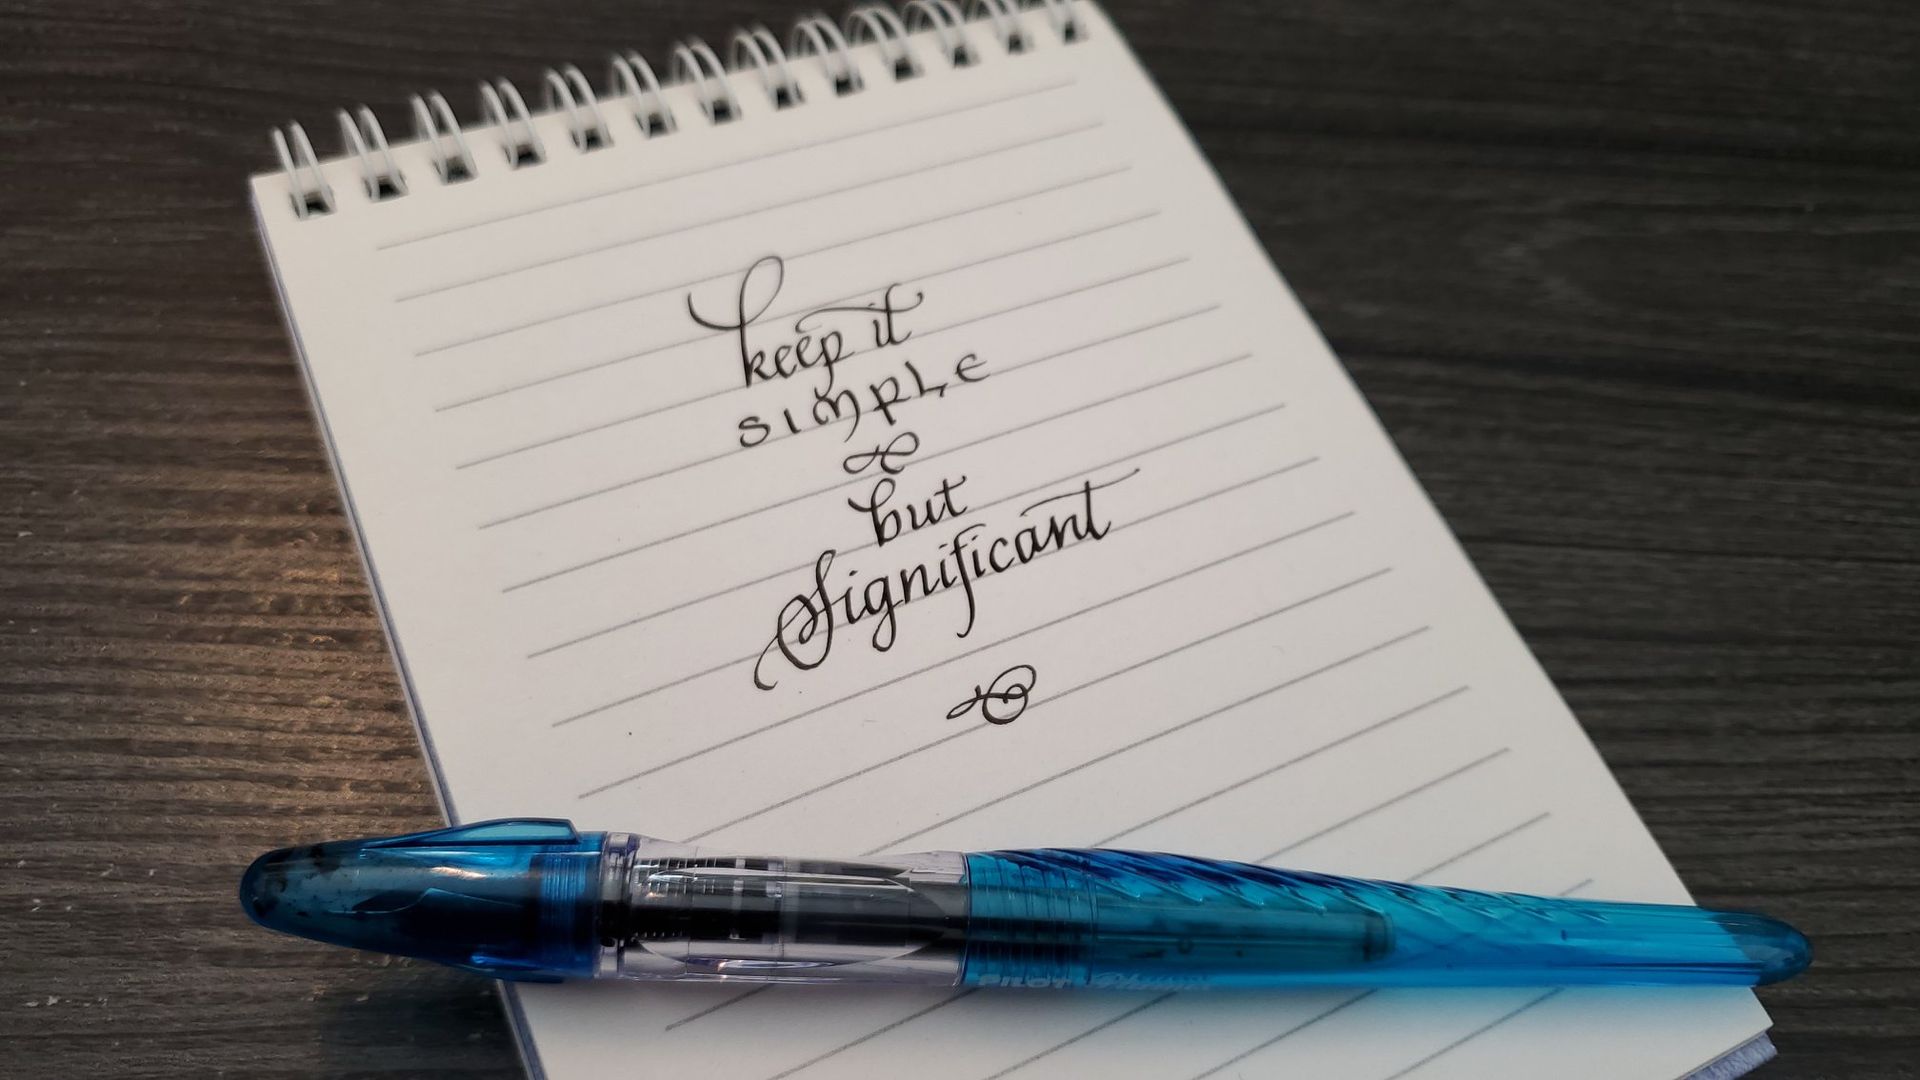 keep it
SIMPLE
but
Significant
PILOT